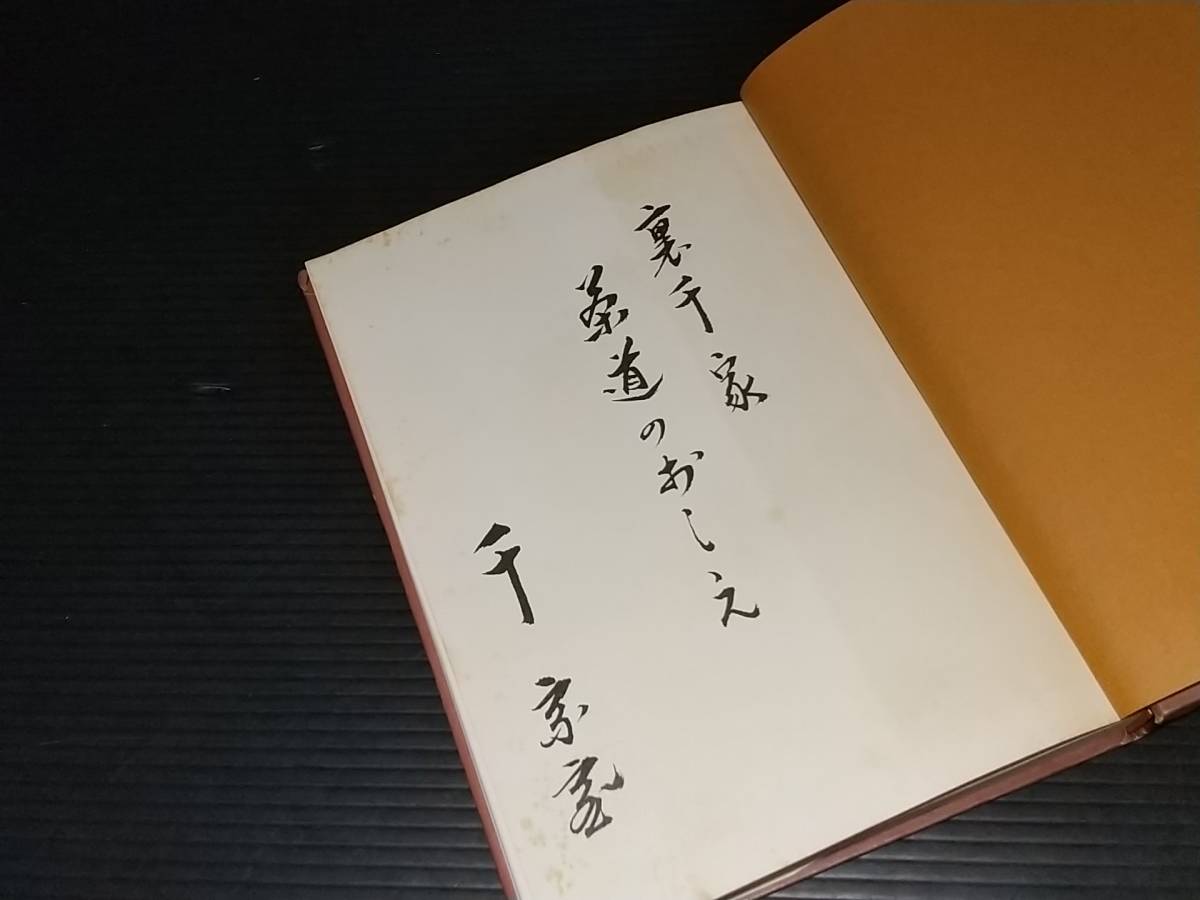 裏千家
茶道のおしえ
千 宗室